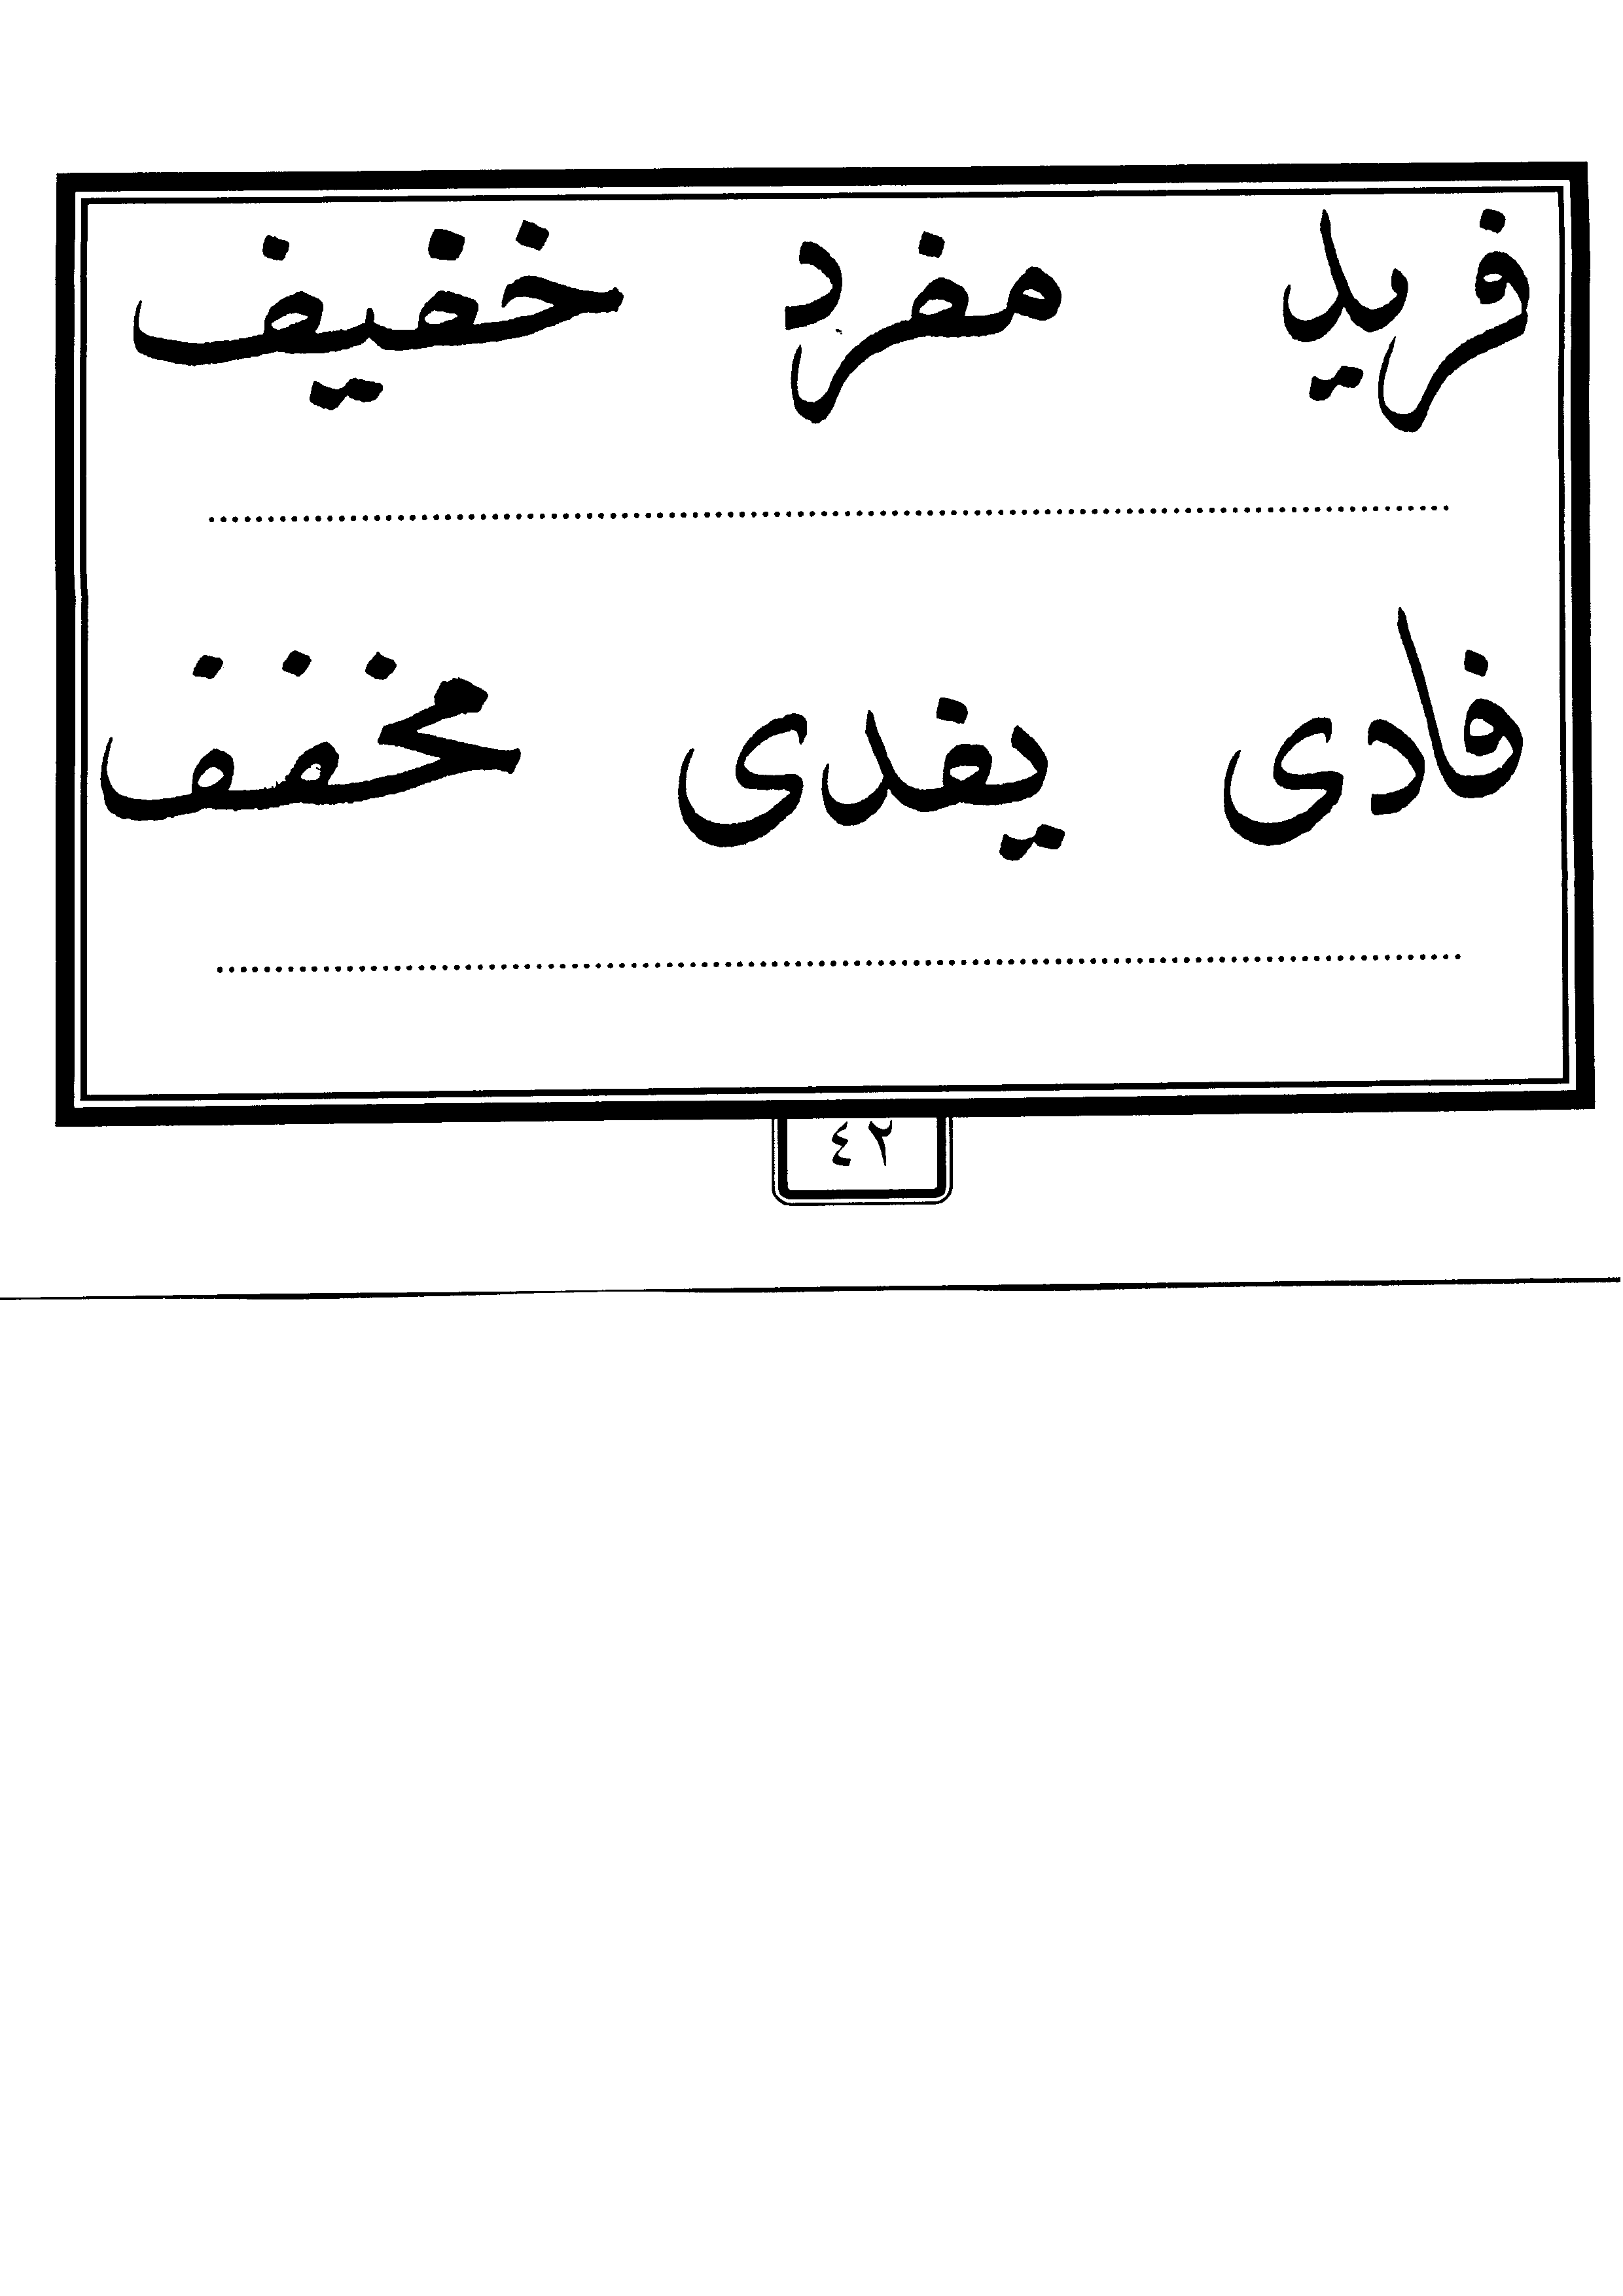 فريد مفرد خفيف
فادى يفدى مخفف
٤٢